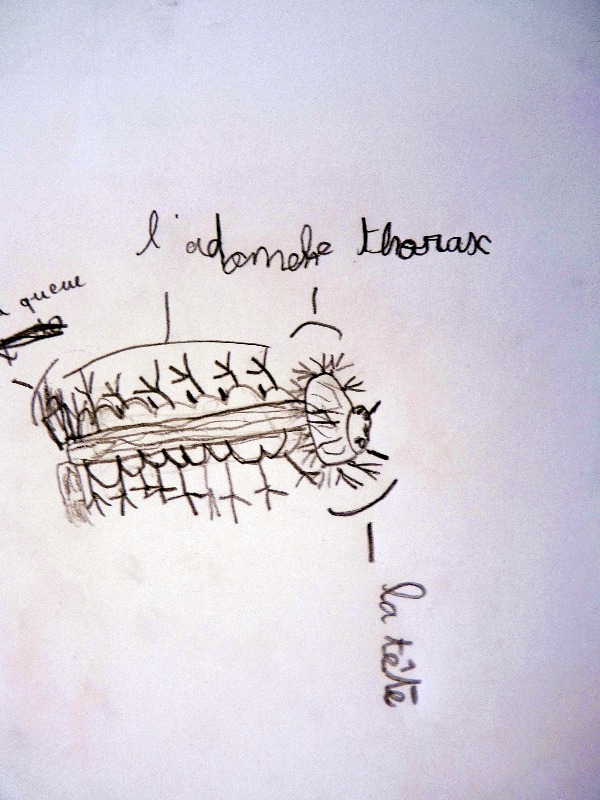 l'adomehe thorax
queue
la tête